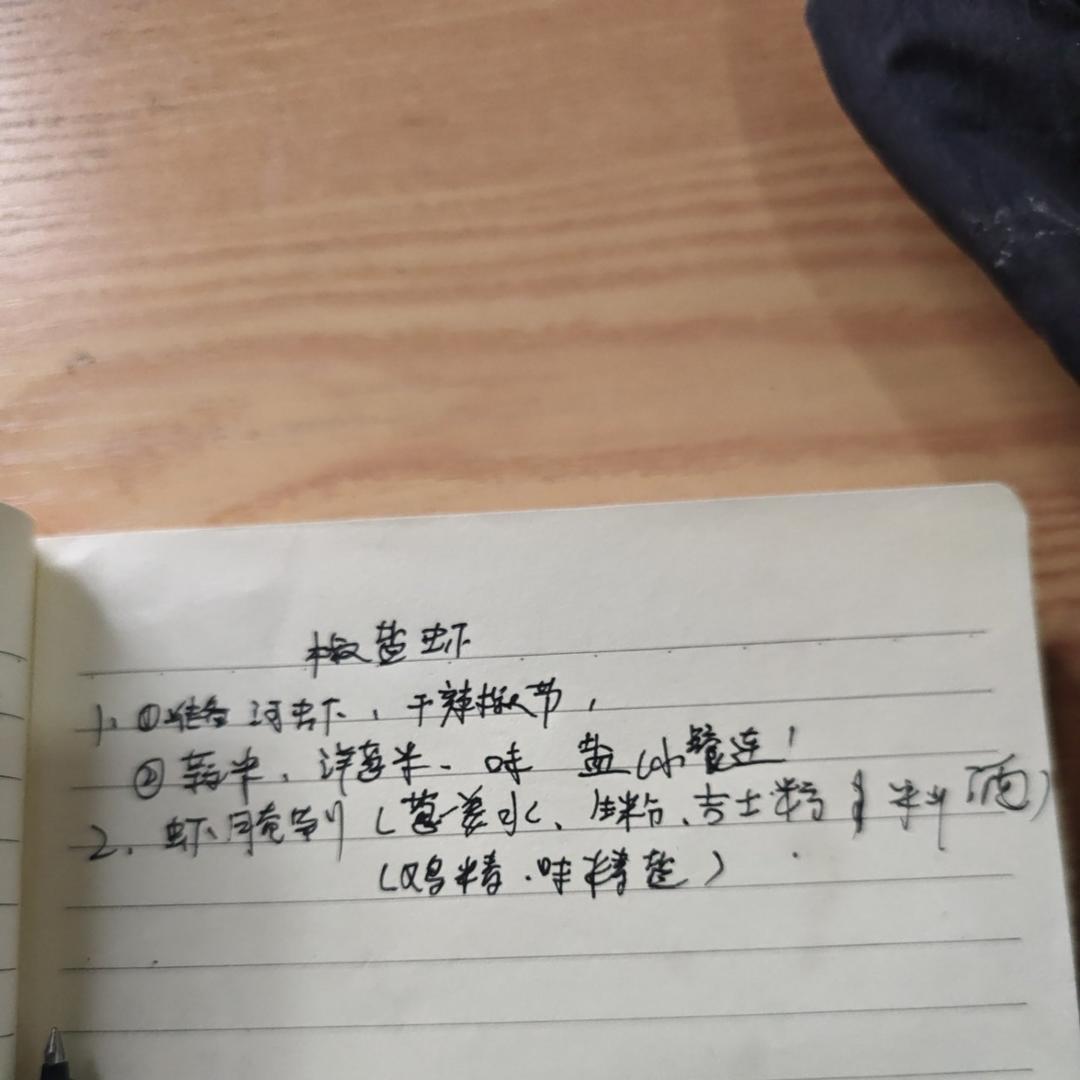 椒盐虾
1. ①准备河虾，干辣椒节，
② 蒜米、洋葱米、味 盐(小
2. 虾腌制（葱姜水、生粉、吉士粉 料酒）
（鸡精、味精盐）